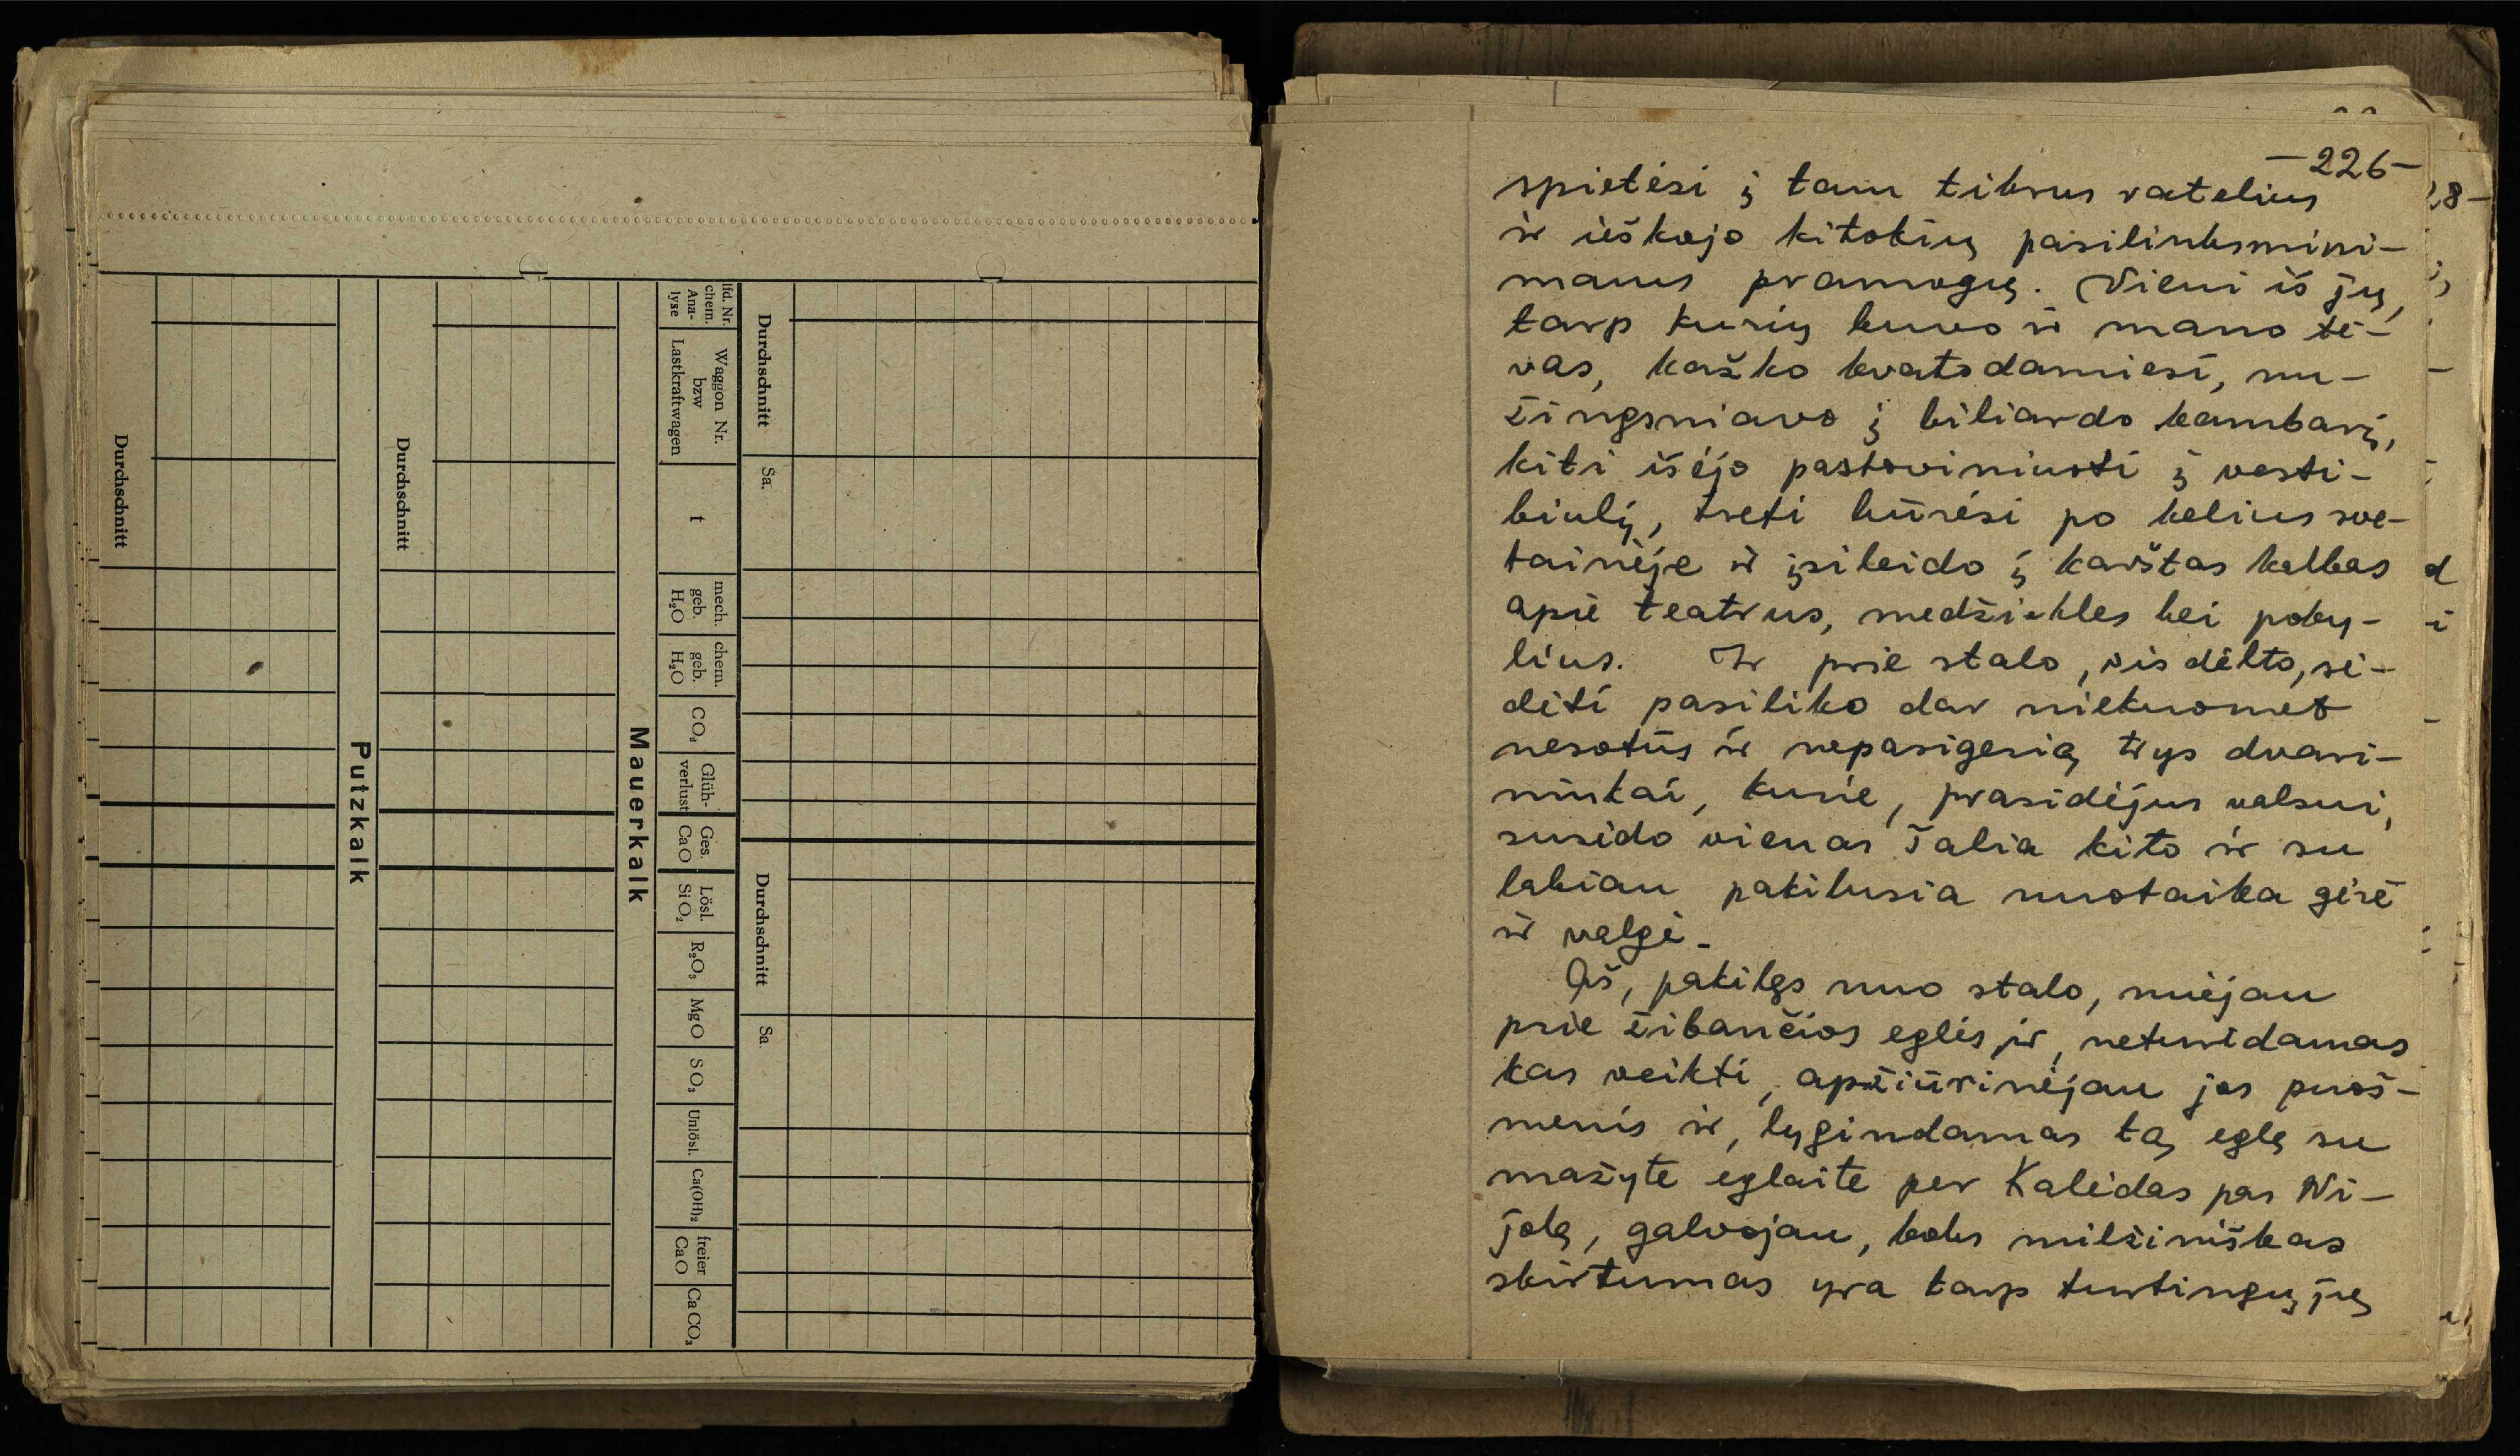 Durchschnitt
Putzkalk
Durchschnitt
Mauerkalk
lfd. Nr. chem. Ana- lyse
Waggon Nr. bzw Lastkraftwagen
t
mech. geb. H₂O
chem. geb. H₂O
CO₂
Glüh- verlust
Ges. CaO
Lösl. SiO₂
R₂O₃
MgO
SO₃
Unlösl.
Ca(OH)₂
freier CaO
CaCO₃
Durchschnitt
Sa.
Durchschnitt
Sa.
—226—
spietėsi į tam tikrus ratelius
ir ieškojo kitokių pasilinksmini-
mams pramogų. Vieni iš jų,
tarp kurių buvo ir mano tė-
vas, kažko kvatodamiesi, nu-
žingsniavo į biliardo kambarį,
kiti išėjo pastoviniuoti į vesti-
biulį, treti būrėsi po kelius sve-
tainėje ir įsileido į karštas kalbas
apie teatrus, medžiokles bei poky-
lius. Ir prie stalo, vis dėlto, sė-
dėti pasiliko dar niekuomet
nesotūs ir nepasigerią trys dvari-
ninkai, kurie, prasidėjus valsui,
susėdo vienas šalia kito ir su
labiau pakilusia nuotaika gėrė
ir valgė.
Aš, pakilęs nuo stalo, nuėjau
prie žibančios eglės ir, neturėdamas
kas veikti, apžiūrinėjau jos puoš-
menis ir, lygindamas tą eglę su
mažyte eglaite per Kalėdas pas Ni-
jolę, galvojau, koks milžiniškas
skirtumas yra tarp turtingųjų
28-
d
i